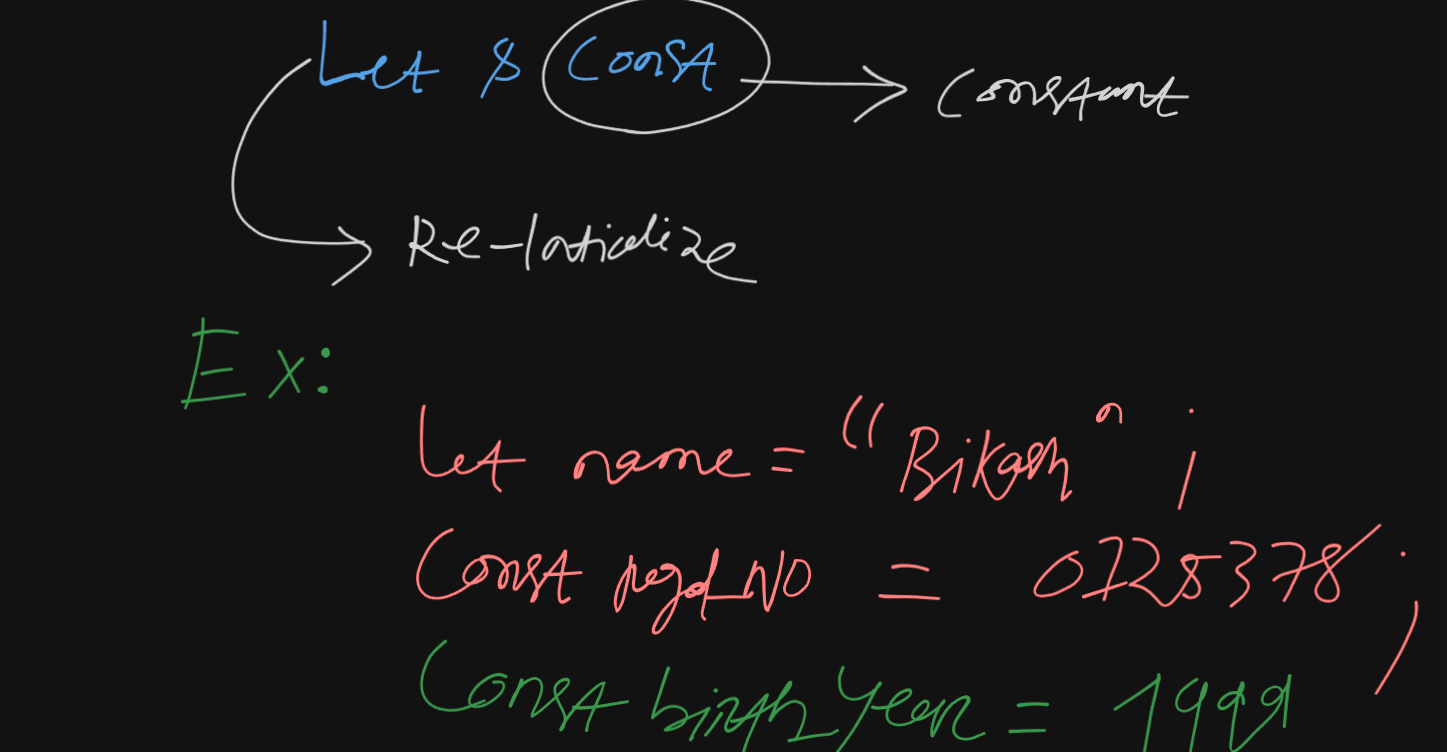 Let & Const → Constant
Re-Initialize
Ex:
Let name = "Bikash" ;
Const regd_NO = 0725378 ;
Const birthYear = 1999